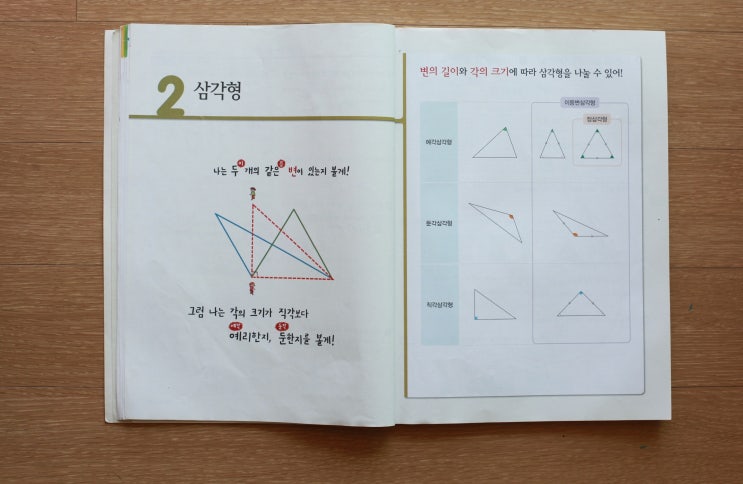 2 삼각형
이 등
나는 두 개의 같은 변이 있는지 볼게!
그럼 나는 각의 크기가 직각보다
예각 둔각
예리한지, 둔한지를 볼게!
변의 길이와 각의 크기에 따라 삼각형을 나눌 수 있어!
이등변삼각형
정삼각형
예각삼각형
둔각삼각형
직각삼각형